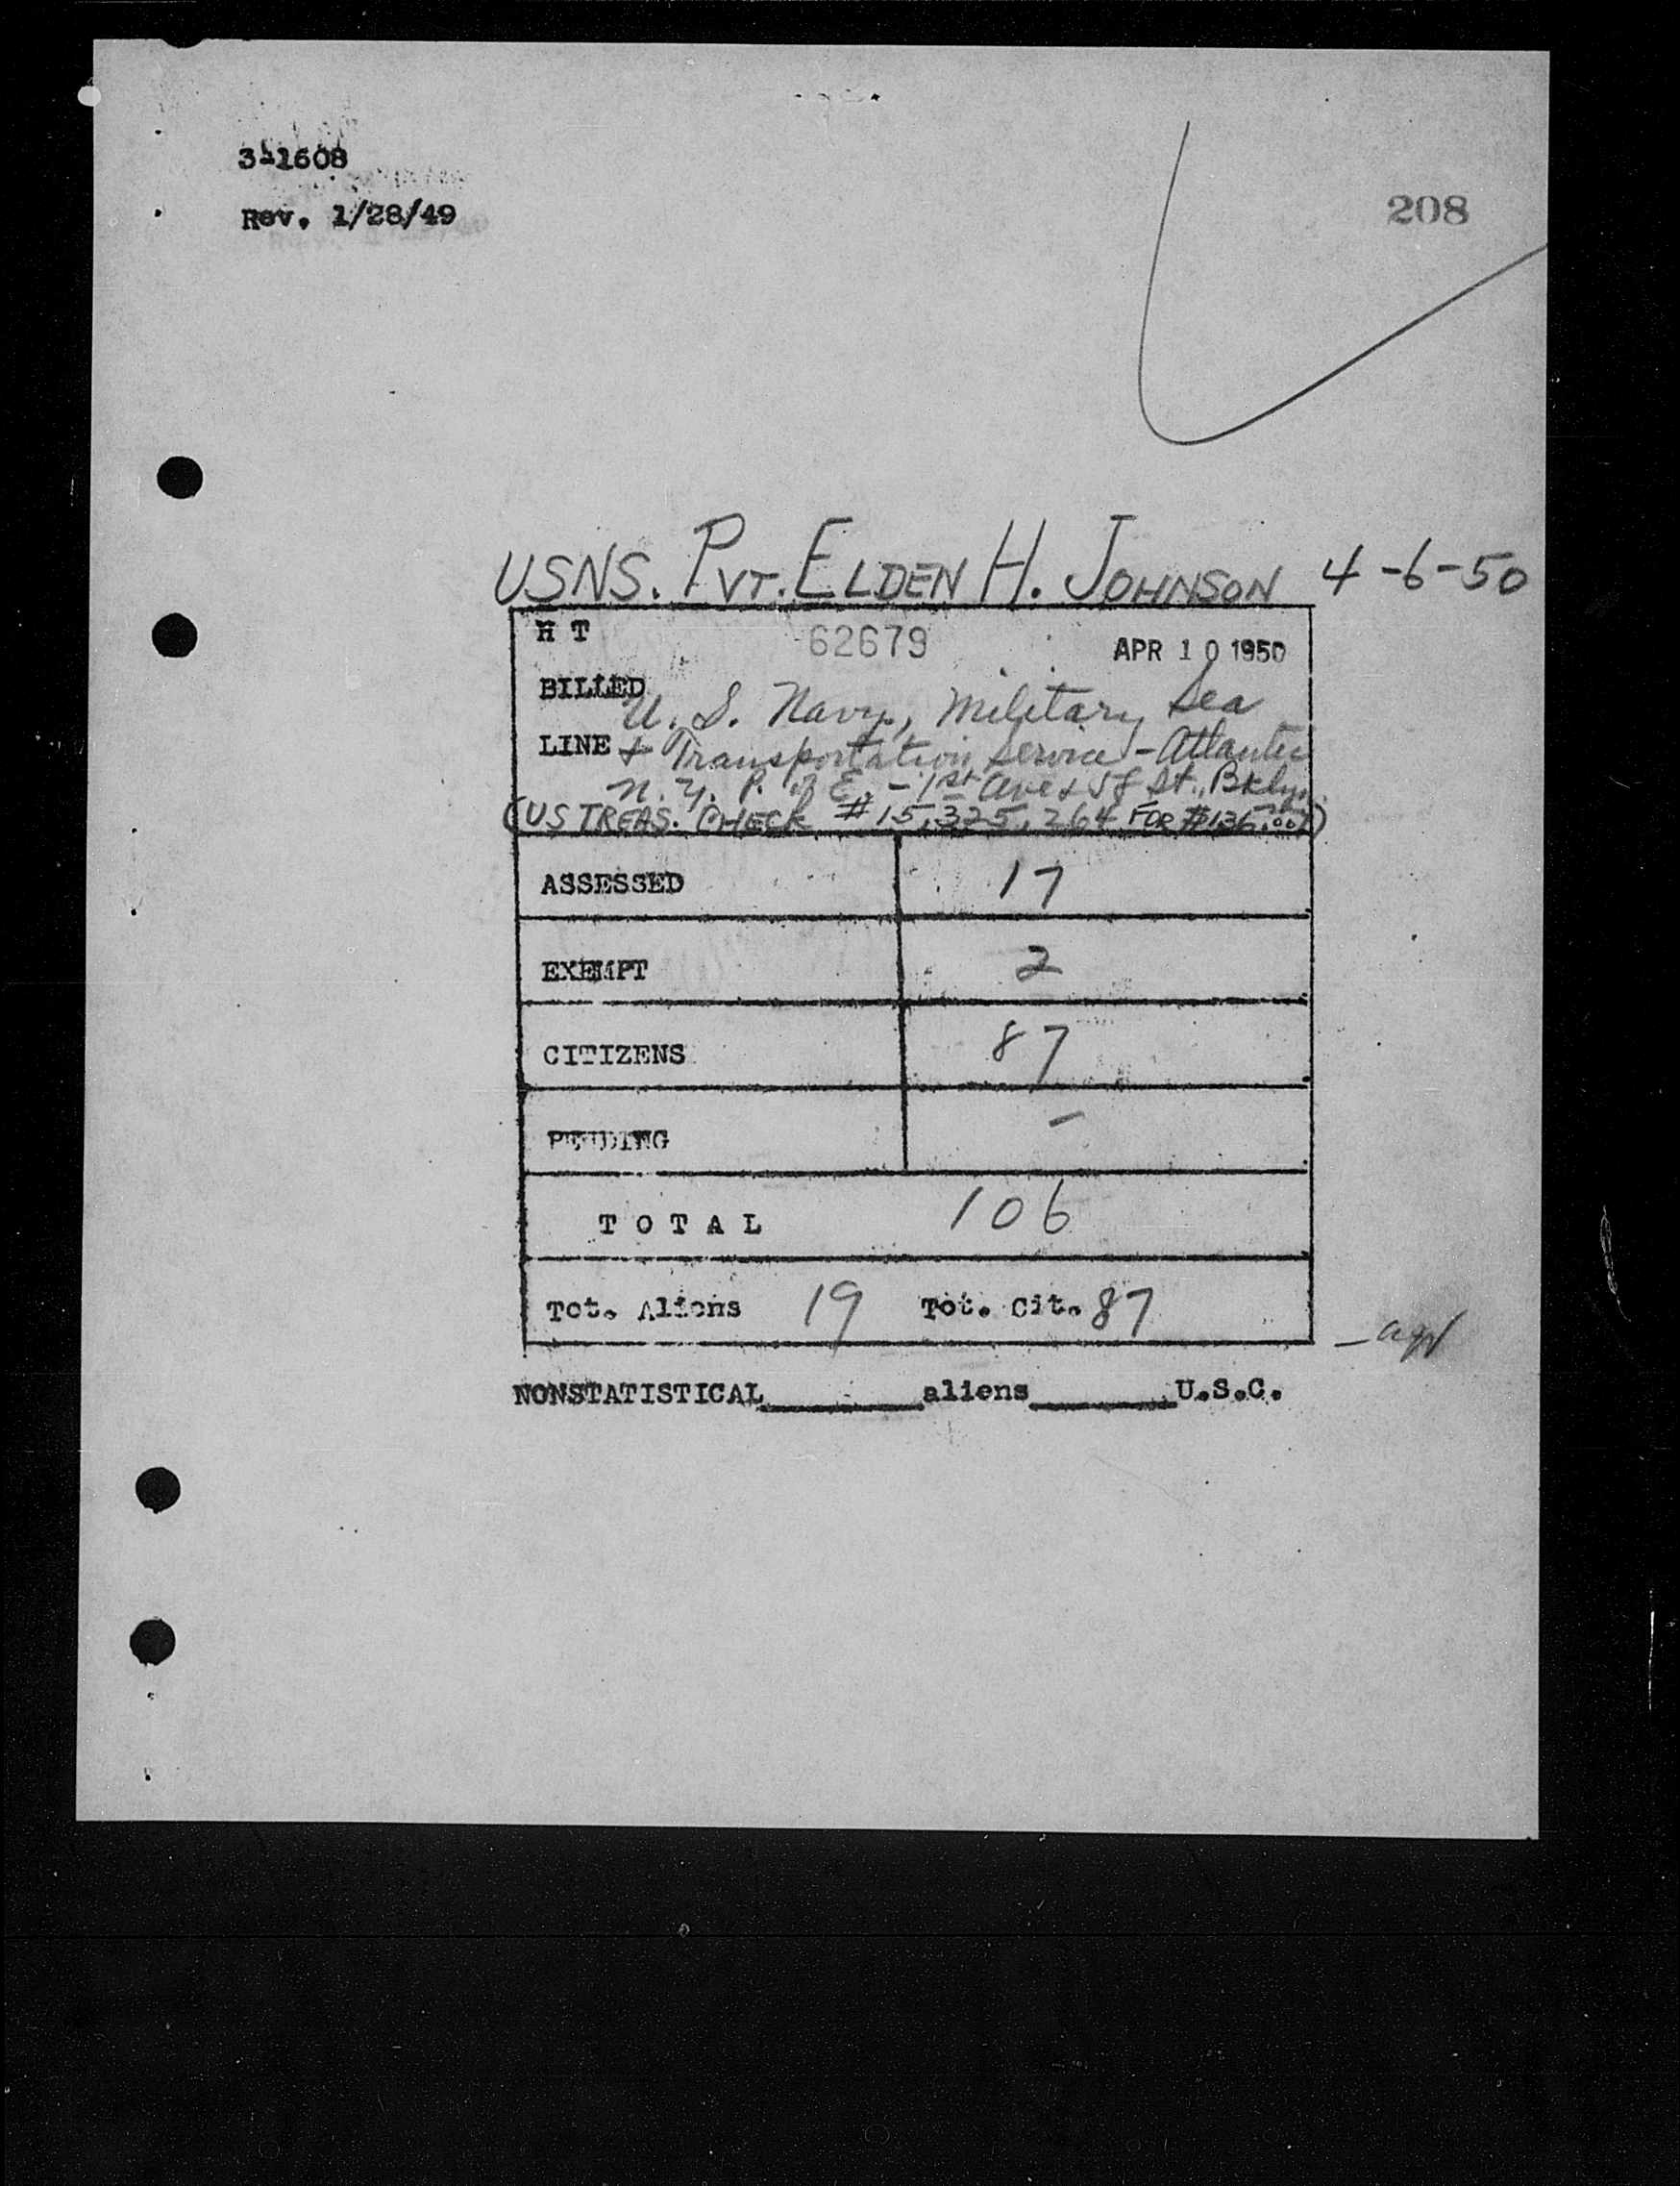 3-1608
208
Rev. 1/28/49
USNS. PVT. ELDEN H. JOHNSON 4-6-50
H T 62679 APR 10 1950
BILLED U. S. Navy, Military Sea
LINE & Transportation Service - Atlantic
N. Y. P. of E. - 1st Ave & 58 St., Bklyn.
(US TREAS. CHECK #15,325,264 FOR $136.00)
ASSESSED 17
EXEMPT 2
CITIZENS 87
PENDING -
TOTAL 106
Tot. Aliens 19 Tot. Cit. 87
NONSTATISTICAL aliens U.S.C.